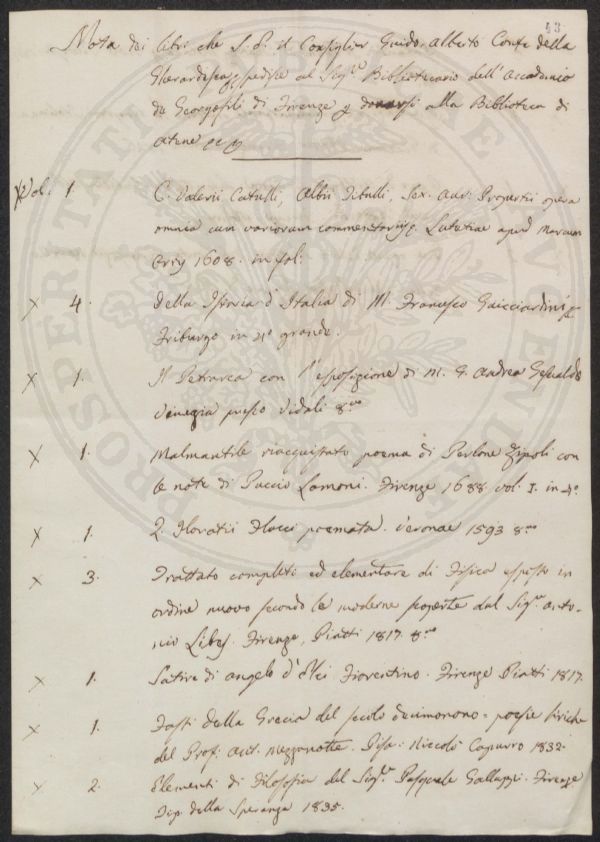 43
Nota dei libri che S. S. il Consiglier Guido Alberto Conte della
Gherardesca spedisce al Sigre Bibliotecario dell'Accademia
de Georgofili di Firenze p donarsi alla Biblioteca di
Atene
Vol. 1 C. Valerii Catulli, Albii Tibulli, Sex. Aur. Propertii opera
omnia cum variorum commentariis. Lutetiae apud Marcum
Orry 1608. in fol:
X 4. Della Istoria d'Italia di M. Francesco Guicciardini
Friburgo in 4o grande.
X 1. Il Petrarca con l'esposizione di M. G. Andrea Gesualdo
Venezia presso Vidali 8vo
X 1. Malmantile riacquistato poema di Perlone Zipoli con
le note di Puccio Lamoni. Firenze 1688 vol. I. in 4o
X 1. Q. Horatii Flacci poemata. Veronae 1593 8vo
X 3. Trattato completo ed elementare di Fisica esposto in
ordine nuovo secondo le moderne scoperte dal Sigre Anto-
nio Libes. Firenze, Piatti 1817. 8vo
X 1. Satire di Angelo d'Elci Fiorentino. Firenze Piatti 1817.
X 1. Fasti della Grecia del secolo decimonono = poesie liriche
del Prof: Ant. Mezzanotte. Pisa: Niccolò Capurro 1832.
X 2. Elementi di Filosofia del Sigre Pasquale Galluppi. Firenze
Tip. della Speranza 1835.
PROSPERITATI PUBLICAE AUGENDAE